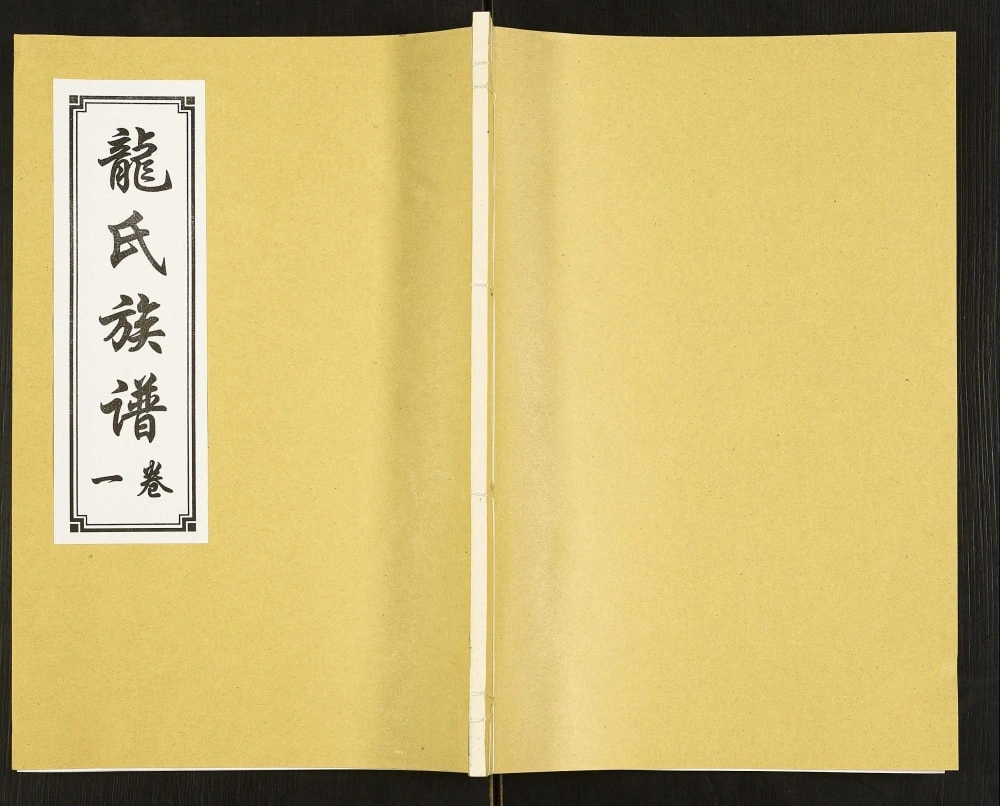 龍氏族谱
卷一